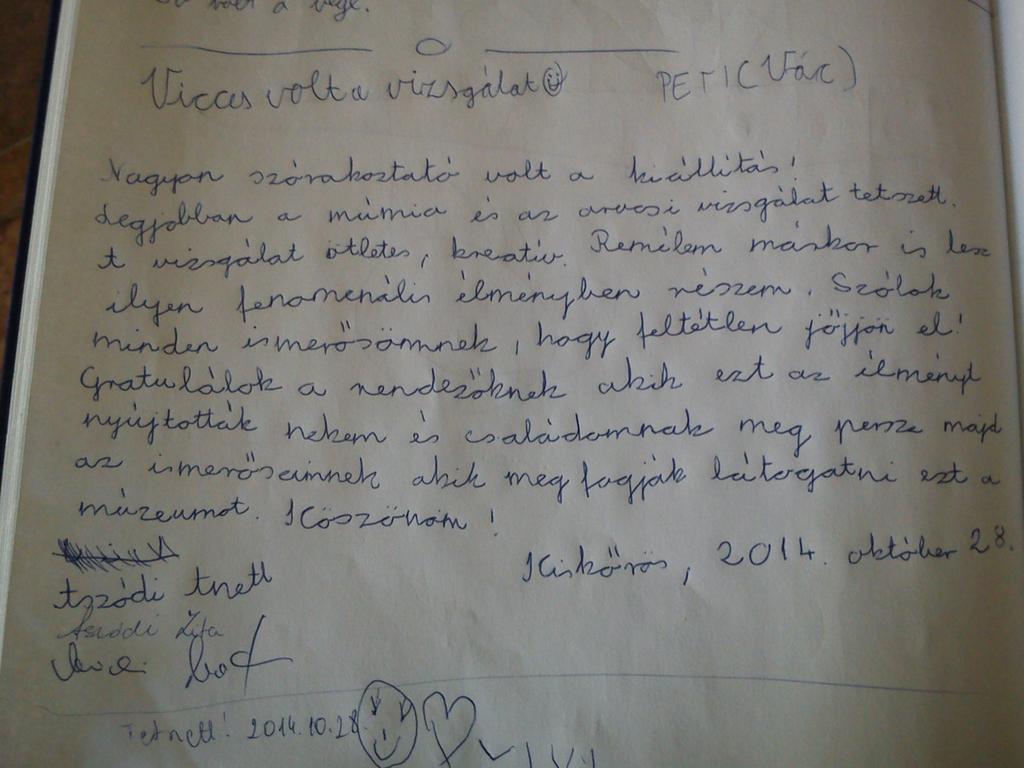 volt a vége.
Vicces volt a vizsgálat PETI (Vác)
Nagyon szórakoztató volt a kiállítás!
Legjobban a múmia és az orvosi vizsgálat tetszett.
A vizsgálat ötletes, kreatív. Remélem máskor is lesz
ilyen fenomenális élményben részem. Szólok
minden ismerősömnek, hogy feltétlen jőjjön el!
Gratulálok a rendezőknek akik ezt az élményt
nyújtották nekem és családomnak meg persze majd
az ismerőseimnek akik meg fogják látogatni ezt a
múzeumot. Köszönöm!
Kiskőrös, 2014. október 28.
Aszódi Anett
Aszódi Zita
Tetszett! 2014.10.28